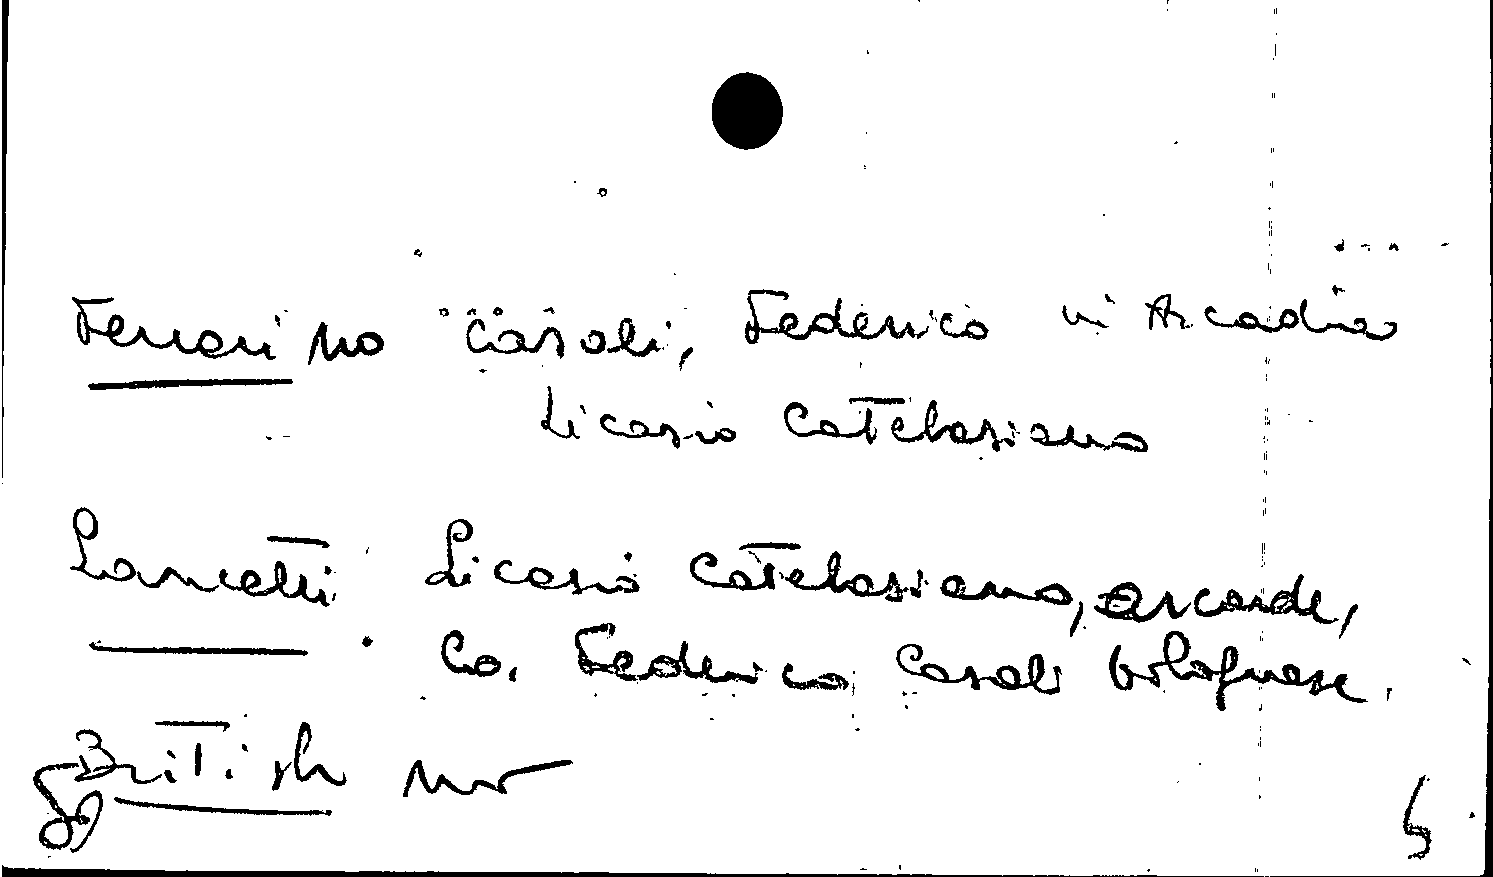 Ferrari no Casali, Federico in Arcadia
Licasio Catelasiano
Lancetti Licasio Catelasiano, arcade,
Co. Federico Casali bolognese.
British no